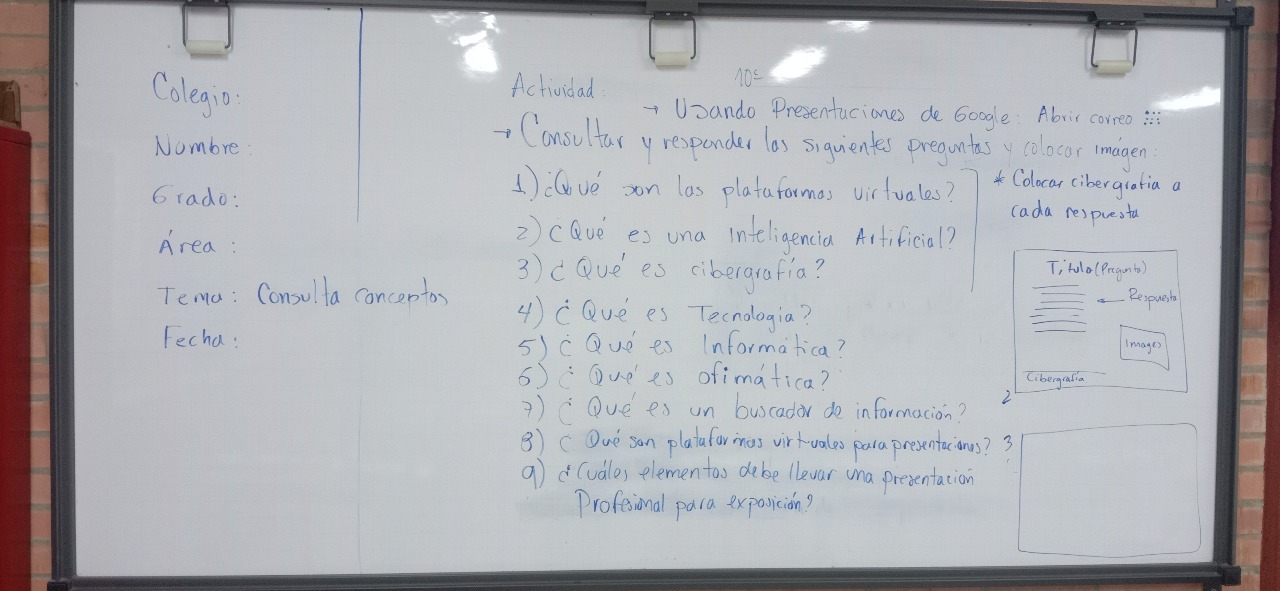 Colegio:
Nombre:
Grado:
Área:
Tema: Consulta conceptos
Fecha:
10°
Actividad:
→ Usando Presentaciones de Google: Abrir correo
→ Consultar y responder las siguientes preguntas y colocar imágen:
1) ¿Qué son las plataformas virtuales?
2) ¿Qué es una Inteligencia Artificial?
3) ¿Qué es cibergrafía?
4) ¿Qué es Tecnologia?
5) ¿Qué es Informática?
6) ¿Qué es ofimática?
7) ¿Qué es un buscador de información?
8) ¿Qué son plataformas virtuales para presentaciones?
9) ¿Cuáles elementos debe llevar una presentación
Profesional para exposición?
* Colocar cibergrafia a
cada respuesta
Título (Pregunta)
← Respuesta
Images
Cibergrafía
2
3